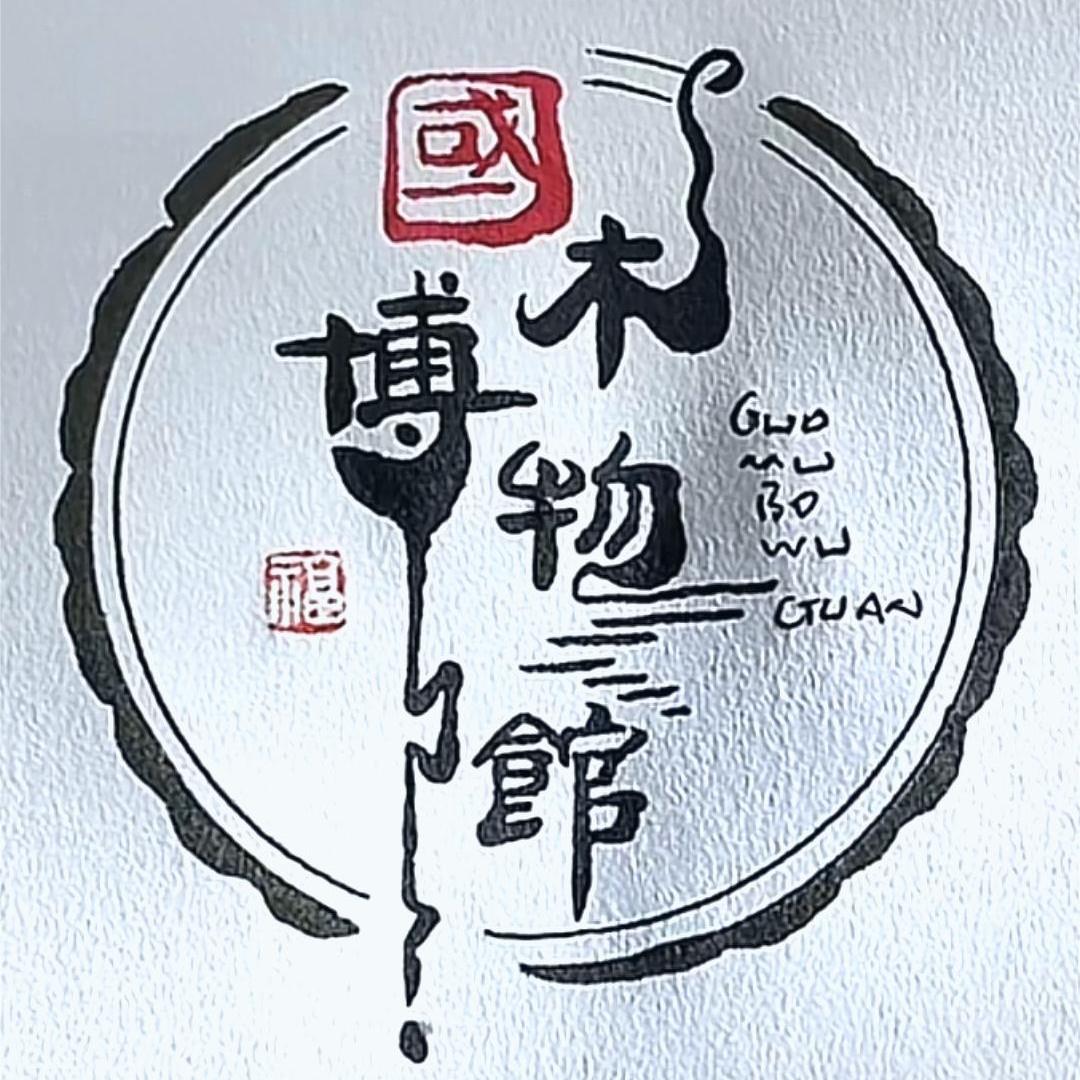 國
木
博
物
館
GUO
MU
BO
WU
GUAN
福